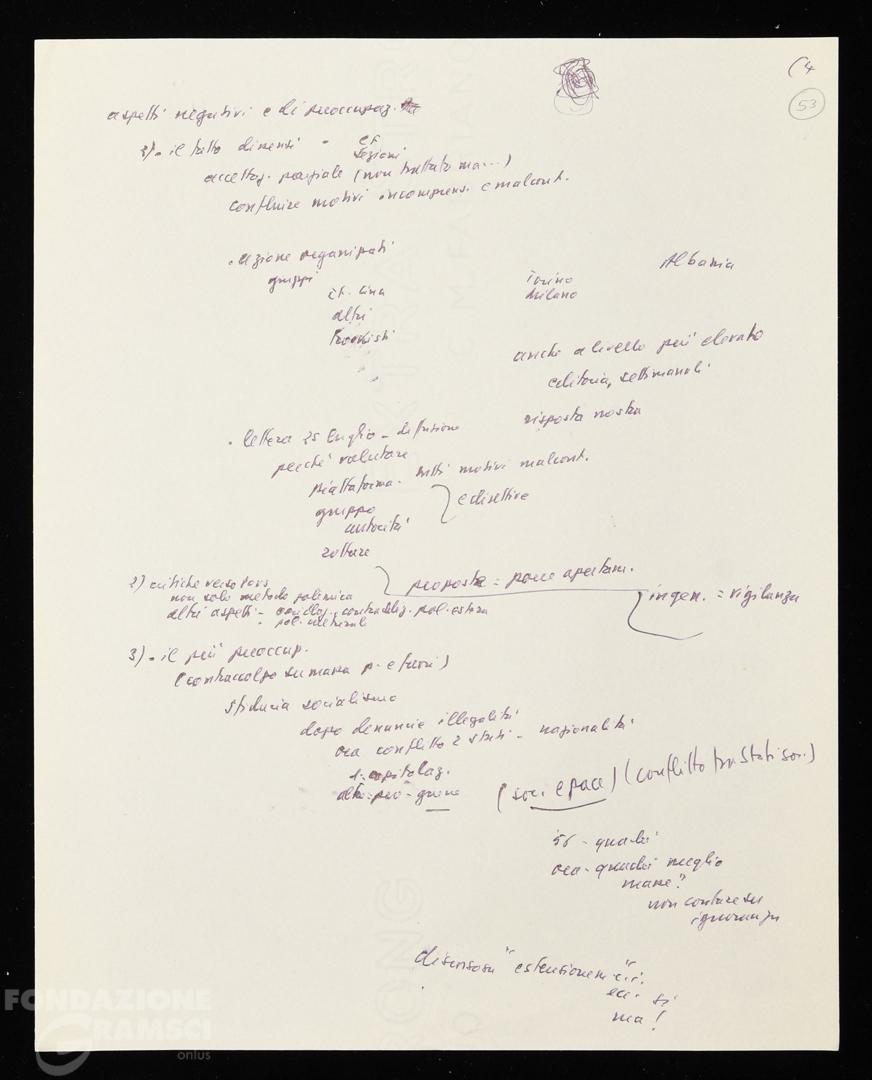 (4
53
aspetti negativi e di preoccupaz.
1) - il fatto dissensi - CF
Sezioni
accettaz. parziale (non trattato ma...)
confluire motivi incomprens. e malcont.
. azione organizzati
gruppi
Albania
Torino
Milano
cf. Cina
altri
trotskisti
anche a livello più elevato
editoria, settimanali
risposta nostra
. lettera 25 luglio - diffusione
perché valutare
piattaforma - tutti motivi malcont.
gruppo
e direttive
autorità
rotture
2) critiche verso
non solo metodo polemica
altri aspetti -
pol. estera
pol. culturale
proposte = porre apertam.
ingen. = vigilanza
3) - il più preoccup.
(contraccolpo su massa p. e fuori)
sfiducia socialismo
dopo denuncie illegalità
ora conflitto 2 stati - nazionalità
1. capitolaz.
altro - pro - guerra
(soc. e pace) (conflitto tra Stati soc.)
56 - quadri
ora - quadri meglio
masse?
non contare su
ignoranza
ecc. sì
ma!
FONDAZIONE
GRAMSCI
onlus